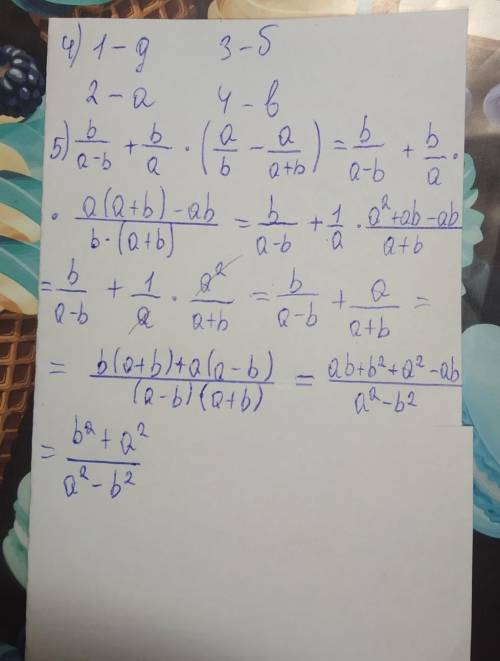 4) 1 – д 3 – б
2 – а 4 – в
5) b/(a-b) + b/a · (a/b - a/(a+b)) = b/(a-b) + b/a ·
· (a(a+b) - ab)/(b·(a+b)) = b/(a-b) + 1/a · (a² + ab - ab)/(a+b)
= b/(a-b) + 1/a · a²/(a+b) = b/(a-b) + a/(a+b) =
= (b(a+b) + a(a-b))/((a-b)(a+b)) = (ab + b² + a² - ab)/(a² - b²)
= (b² + a²)/(a² - b²)